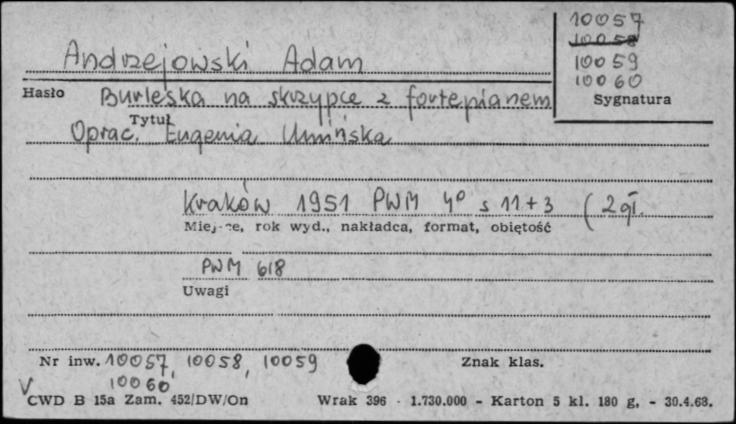 10057
10058
Andrzejowski Adam
10059
10060
Hasło Burleska na skrzypce z fortepianem
Sygnatura
Tytuł
Oprac. Eugenia Umińska
Kraków 1951 PWM 4° s 11+3 (2 gł.
Miejsce, rok wyd., nakładca, format, obiętość
PWM 618
Uwagi
Nr inw. 10057, 10058, 10059
Znak klas.
10060
V
CWD B 15a Zam. 452/DW/On Wrak 396 - 1.730.000 - Karton 5 kl. 180 g, - 30.4.68.